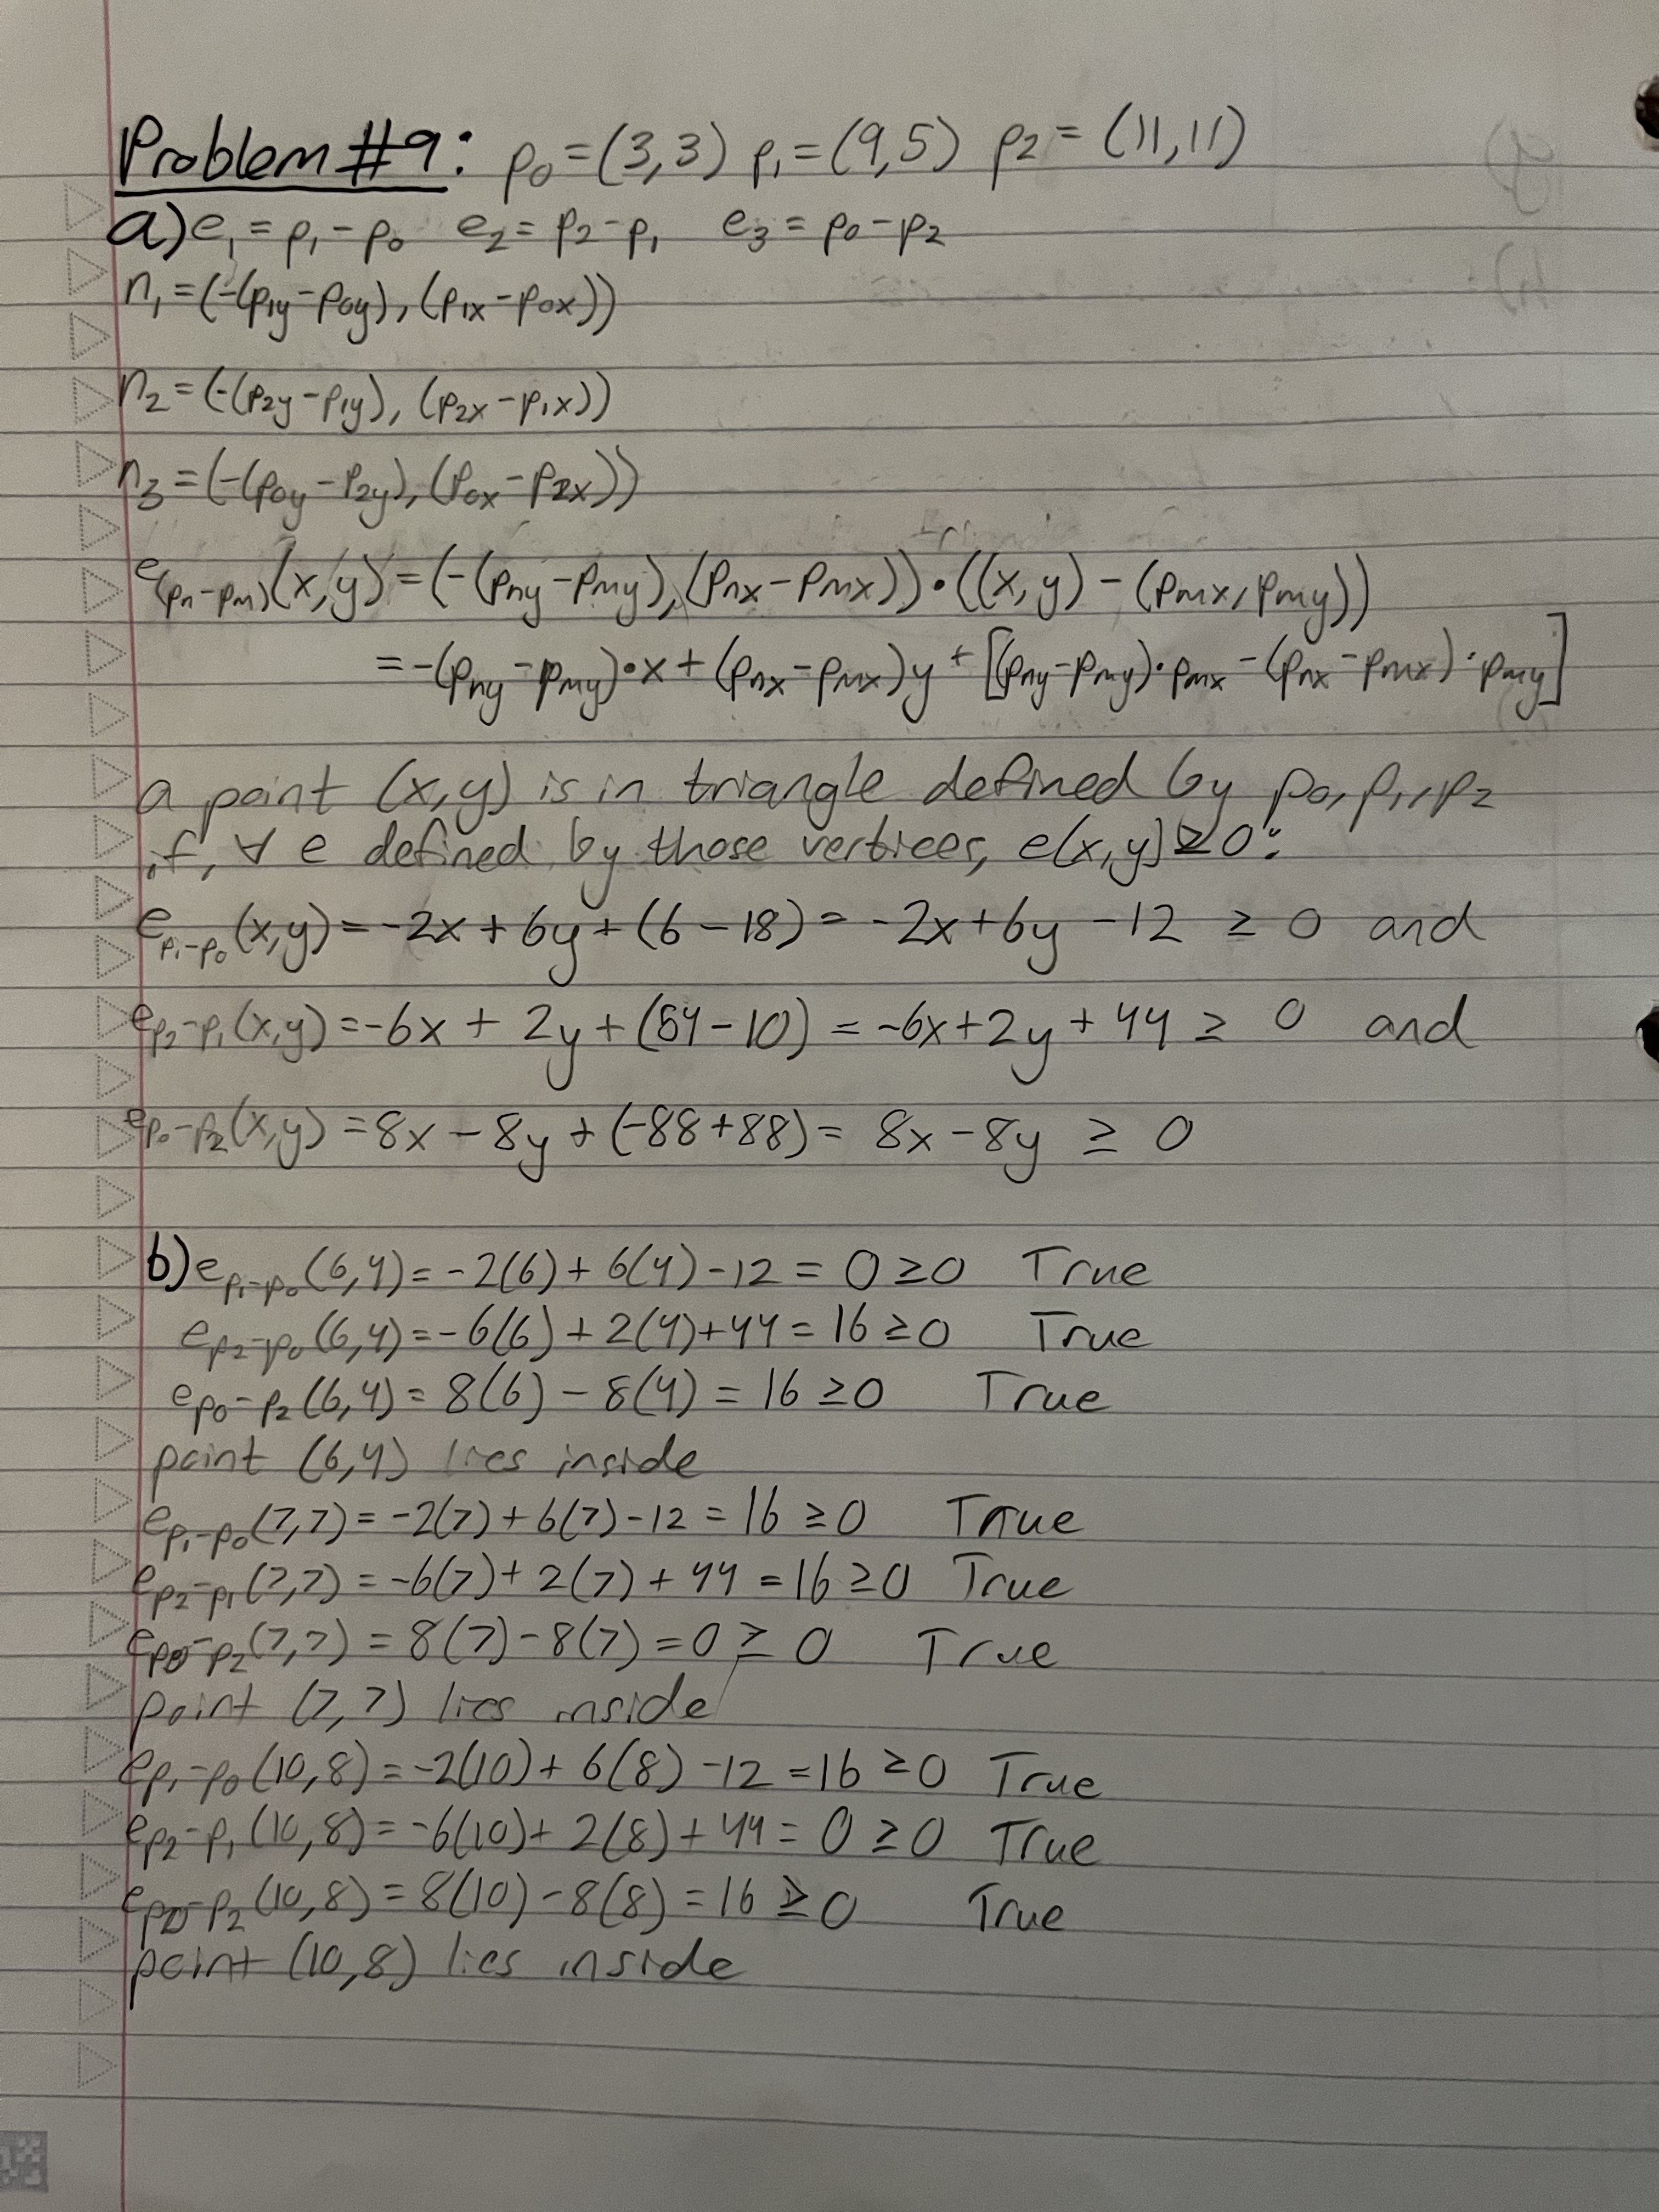 Problem #9: p₀=(3,3) p₁=(9,5) p₂=(11,11)
a) e₁=p₁-p₀ e₂=p₂-p₁ e₃=p₀-p₂
n₁=(-(p₁y-p₀y),(p₁x-p₀x))
n₂=(-(p₂y-p₁y),(p₂x-p₁x))
n₃=(-(p₀y-p₂y),(p₀x-p₂x))
e(pn-pm)(x,y)=(-(pny-pmy),(pnx-pmx))•((x,y)-(pmx,pmy))
=-(pny-pmy)•x+(pnx-pmx)y+[(pny-pmy)•pmx-(pnx-pmx)•pmy]
a point (x,y) is in triangle defined by p₀,p₁,p₂
if, ∀ e defined by those vertices, e(x,y)≥0:
e p₁-p₀(x,y)=-2x+6y+(6-18)=-2x+6y-12 ≥ 0 and
e p₂-p₁(x,y)=-6x+2y+(54-10)=-6x+2y+44 ≥ 0 and
e p₀-p₂(x,y)=8x-8y+(-88+88)=8x-8y ≥ 0
b) e p₁-p₀(6,4)=-2(6)+6(4)-12=0≥0 True
e p₂-p₀(6,4)=-6(6)+2(4)+44=16≥0 True
e p₀-p₂(6,4)=8(6)-8(4)=16≥0 True
point (6,4) lies inside
e p₁-p₀(7,7)=-2(7)+6(7)-12=16≥0 True
e p₂-p₁(7,7)=-6(7)+2(7)+44=16≥0 True
e p₀-p₂(7,7)=8(7)-8(7)=0≥0 True
point (7,7) lies inside
e p₁-p₀(10,8)=-2(10)+6(8)-12=16≥0 True
e p₂-p₁(10,8)=-6(10)+2(8)+44=0≥0 True
e p₀-p₂(10,8)=8(10)-8(8)=16≥0 True
point (10,8) lies inside